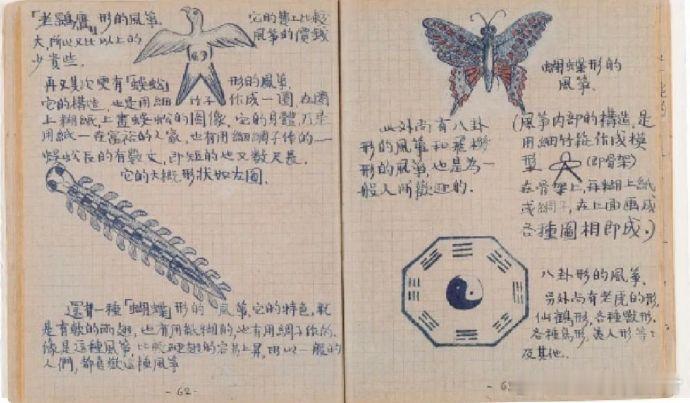 「老鷂鷹」形的風箏。
它的售上比較
大,所以又比以上的
風箏的價錢
少貴些。
再又其次更有「蜈蚣」形的風箏。
它的構造,也是用細竹子作成一圈,在圈
上糊紙上畫蜈蚣的圖像,它的身體乃是
用紙一在富裕的人家,也有用細綢子作的一
蜈蚣長的有數丈,即短的也又數尺長。
它的大概形狀如左圖。
還有一種「蝴蝶」形的風箏,它的特色,就
是有軟的兩翅,也有用紙糊的,也有用綢子作的,
像是這種風箏比較硬翅的容易上昇,所以一般的
人們,都喜歡這種風箏
-62-
蝴蝶形的
風箏。
此外尚有八卦
形的風箏和
形的風箏,也是為一
般人所歡迎的.
(風箏内部的構造,是
用細竹篾作成模
型 (即骨架)
在骨架上,再糊上紙
或綢子,在上面画成
各種圖相即成。)
八卦形的風箏。
另外尚有老虎的形,
仙鶴形,各種獸形,
各種鳥形,美人形等等
及其他.